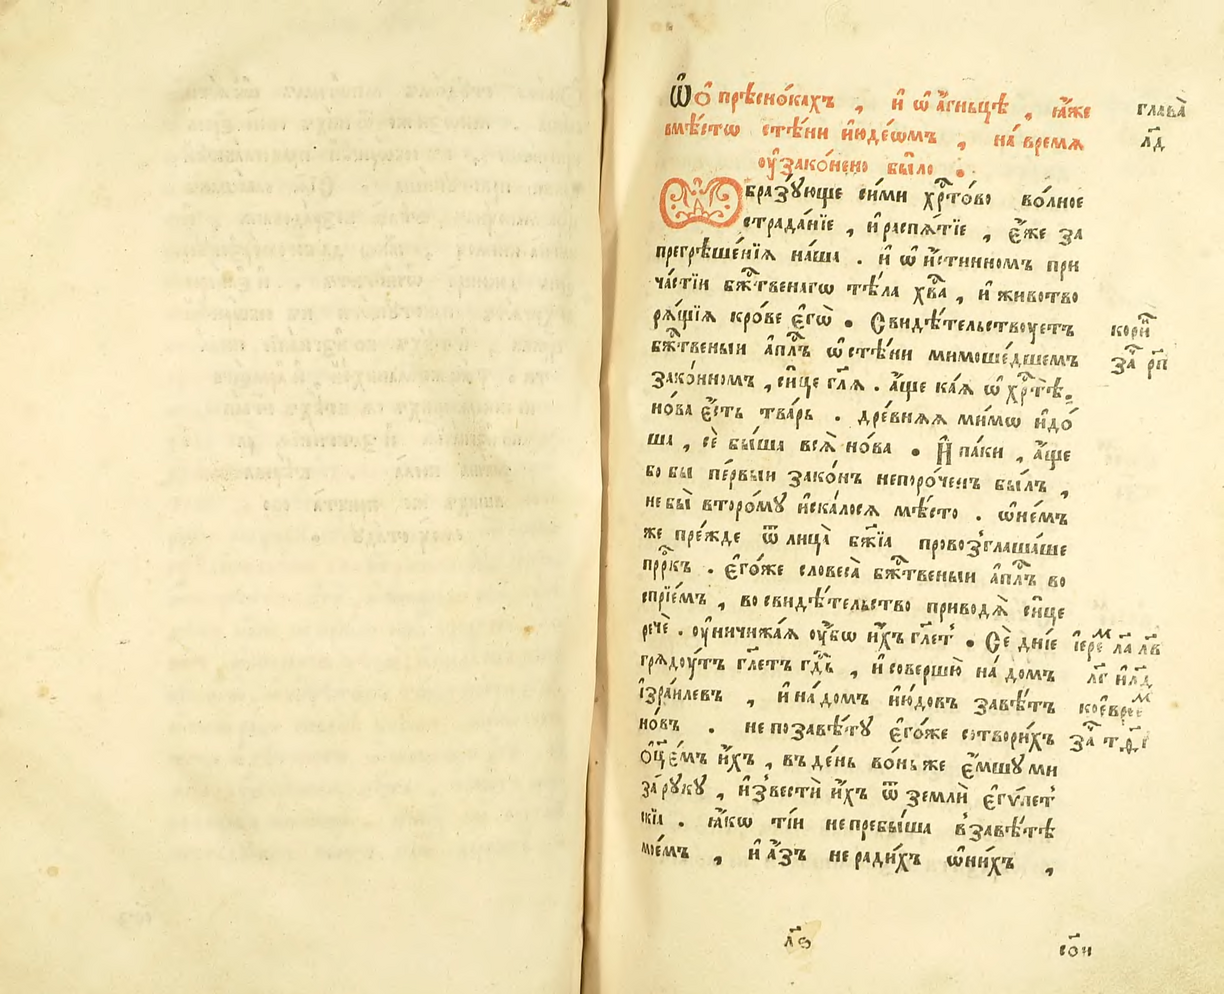 Ѡ҆ ѻ҆прѣсно́кахъ , и҆ ѡ҆ а҆́гньцѣ , ꙗ҆́же
вмѣ́стѡ стѣ́ни и҆юде́ѡмъ , на́ время
ᲂу҆зако́нено бы́ло .
глава̀
л҃д
Ѡбразꙋ́юще си́ми хрⷭ҇то́во во́лное
страда́нїе , и҆ распѧ́тїе , є҆́же за
прегрѣше́нїѧ на́ша . и҆ ѡ҆ и҆́стинномъ при
ча́стїи бжⷭ҇твенагѡ тѣ́ла хв҃а , и҆ животво
рѧ́щїѧ кро́ве є҆гѡ̀ . Свидѣ́тельствоуетъ
бжⷭ҇твеныи а҆пⷭ҇лъ ѡ҆ стѣ́ни мимоше́дшемъ
зако́нномъ , си́це гл҃ѧ . а҆́ще ка́ѧ ѡ҆ хрⷭ҇тѣ̀ .
но́ва є҆́сть тва́рь . дре́внѧѧ мимѡ и҆до́
ша , сѐ бы́ша всѧ̀ но́ва . И҆ па́ки , а҆́ще
бо бы пе́рвыи зако́нъ непоро́ченъ бы́лъ ,
не бы̀ второ́мꙋ и҆ска́лосѧ мѣ́сто . ѡ҆не́мъ
же пре́жде ѿ лица̀ бж҃їа провозглаша́ше
прⷪ҇ркъ . є҆го́же словеса̀ бжⷭ҇твеныи а҆пⷭ҇лъ во
спрїе́мъ , во свидѣ́тельство приводѧ̀ си́це
речѐ . ᲂу҆ничижа́ѧ ᲂу҆́бѡ и҆́хъ гл҃етъ . Сѐ дні́е
грѧдоу́тъ гл҃етъ гдⷭ҇ь , и҆ соверше́ю на́ домъ
і҆зра́илевъ , и҆ на́ домъ и҆ю́довъ завѣ́тъ
но́въ . не по завѣ́тꙋ є҆го́же сотвори́хъ
ѻ҆ц҃е́мъ и҆́хъ , въ де́нь во́ньже є҆́мшꙋ ми
за́ рꙋкꙋ , и҆звестѝ и҆́хъ ѿ землѝ є҆гѵ́пет
скїѧ . ꙗ҆́кѡ ті́и не пребы́ша в̾завѣ́тѣ
мое́мъ , и҆ а҆́зъ не ради́хъ ѡ҆ ни́хъ ,
кори́нⷴ҇
заⷱ҇ рп҃
і҆ереⷨ л҃а л҃в
л҃г и҆ л҃д
ко є҆вре́еⷨ
заⷱ҇
со҃и